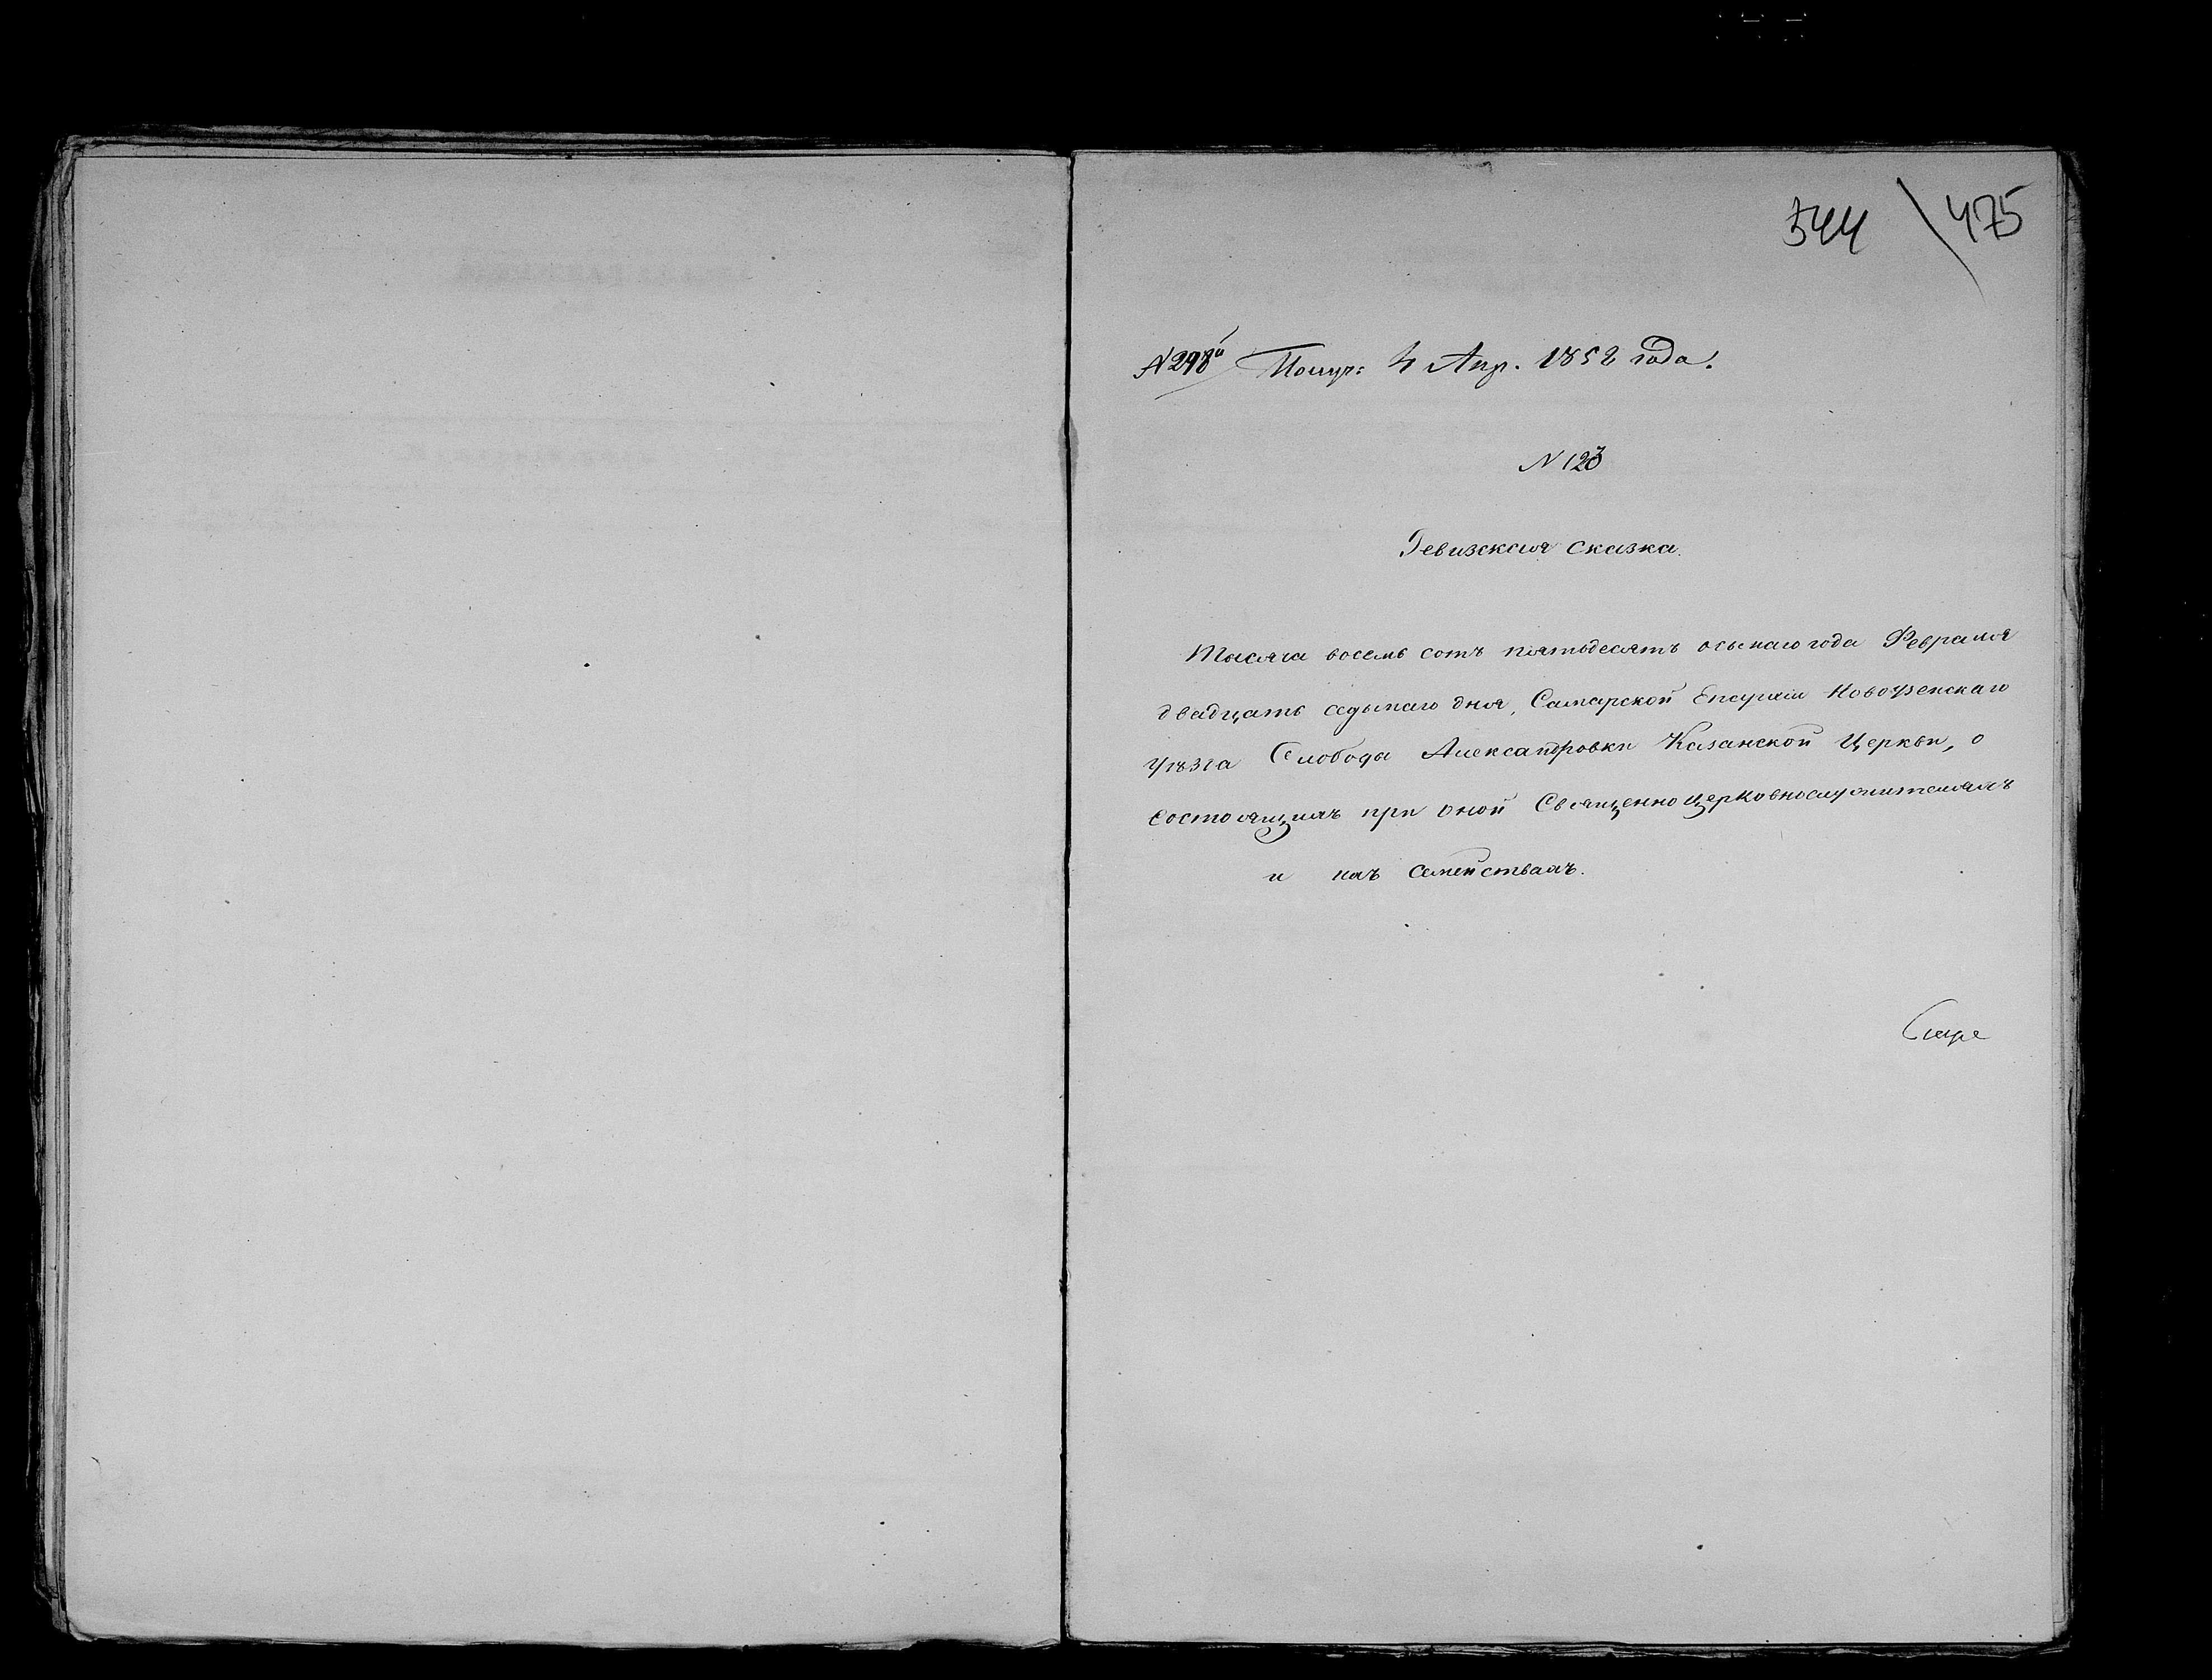 544 \ 475
N 298й Получ: 4 Апр. 1858 года.
N 123
Ревизская сказка.
Тысяча восемь сотъ пятьдесятъ осьмаго года Февраля
двадцать седьмаго дня, Самарской Епархіи Новоузенскаго
уѣзда Слободы Александровки Казанской Церкви, о
состоящихъ при оной Священноцерковнослужителяхъ
и ихъ семействахъ.